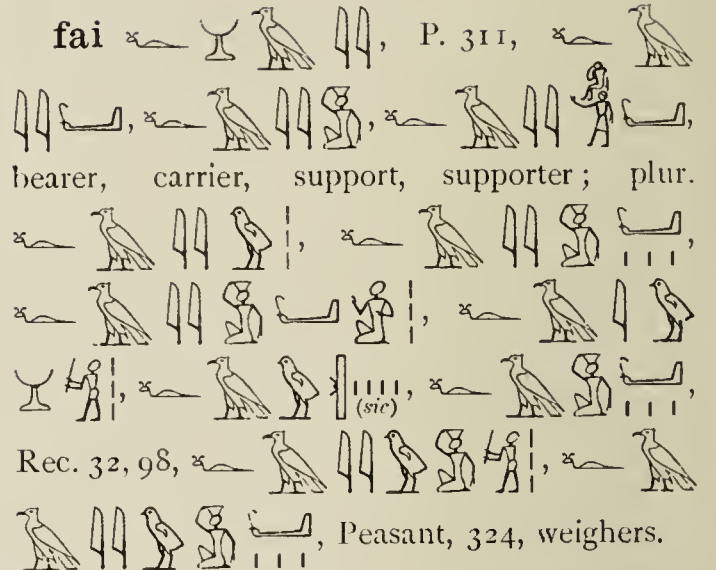 fai 𓆑𓄿𓇌, P. 311, 𓆑𓄿
𓇌𓂝, 𓆑𓄿𓇌𓀋, 𓆑𓄿𓇌𓂝,
bearer, carrier, support, supporter; plur.
𓆑𓄿𓇌𓅱𓏤, 𓆑𓄿𓇌𓀋𓂝𓏥,
𓆑𓄿𓇌𓀋𓂝𓀀𓏤, 𓆑𓄿𓇋𓅱
𓀜𓏤, 𓆑𓄿𓅱 (sic), 𓆑𓄿𓀋𓂝𓏥,
Rec. 32, 98, 𓆑𓄿𓇌𓅱𓀋𓀜𓏤, 𓆑𓄿
𓄿𓇌𓅱𓀋𓂝𓏥, Peasant, 324, weighers.